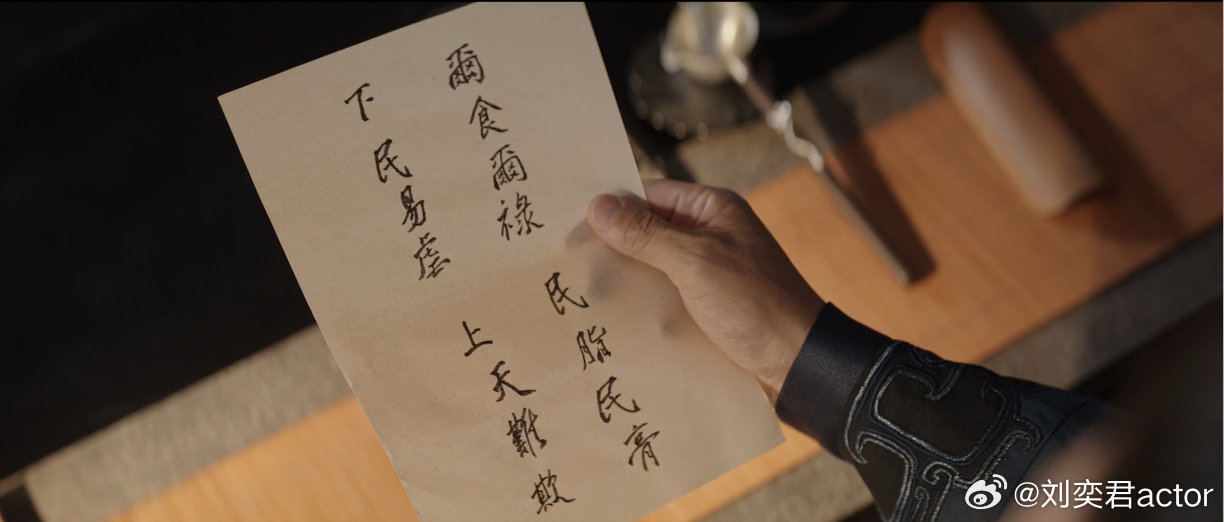 爾食爾祿 民脂民膏
下民易虐 上天難欺
@刘奕君actor